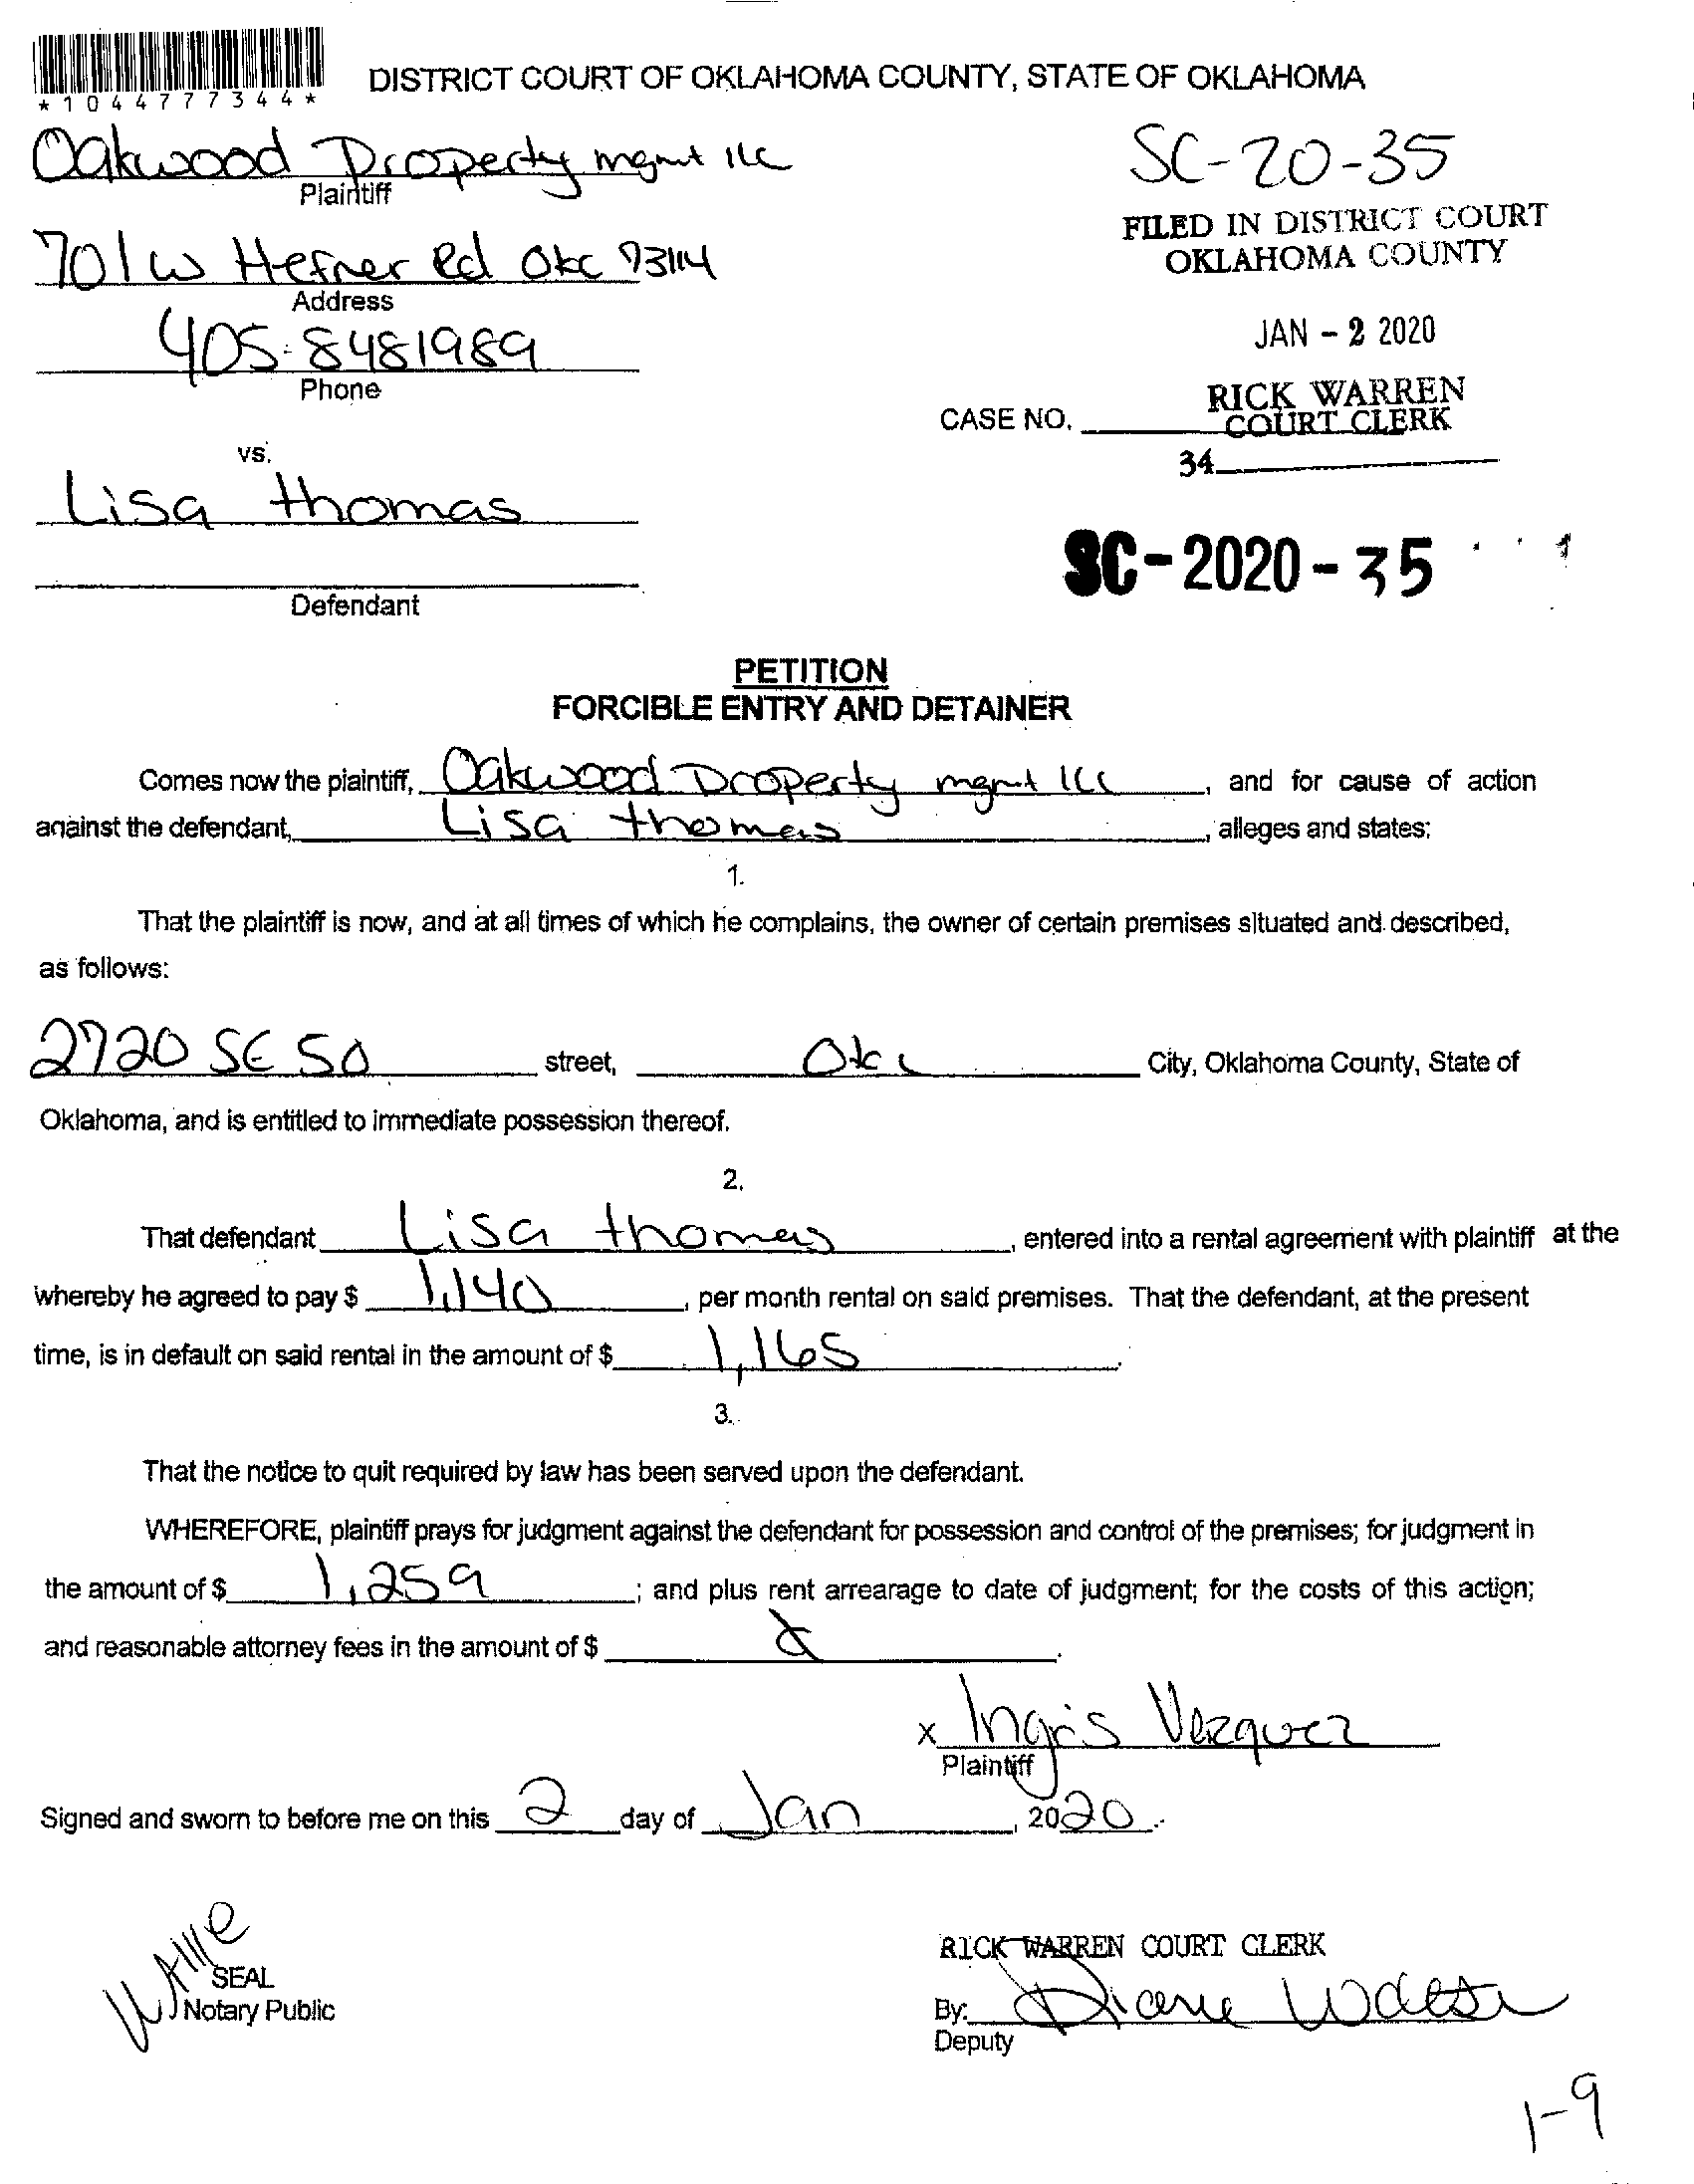 *1044777344*
DISTRICT COURT OF OKLAHOMA COUNTY, STATE OF OKLAHOMA
Oakwood Property mgmt llc
Plaintiff
SC-20-35
FILED IN DISTRICT COURT
OKLAHOMA COUNTY
701 W Hefner Rd Okc 73114
Address
JAN - 2 2020
405-8481989
Phone
RICK WARREN
CASE NO. COURT CLERK
34
vs.
Lisa thomas
SC-2020-35
Defendant
PETITION
FORCIBLE ENTRY AND DETAINER
Comes now the plaintiff, Oakwood Property mgmt llc, and for cause of action
against the defendant, Lisa thomas, alleges and states:
1.
That the plaintiff is now, and at all times of which he complains, the owner of certain premises situated and described,
as follows:
2720 SE 50 street, Okc City, Oklahoma County, State of
Oklahoma, and is entitled to immediate possession thereof.
2.
That defendant Lisa thomas, entered into a rental agreement with plaintiff at the
whereby he agreed to pay $ 1,140, per month rental on said premises. That the defendant, at the present
time, is in default on said rental in the amount of $ 1,165.
3.
That the notice to quit required by law has been served upon the defendant.
WHEREFORE, plaintiff prays for judgment against the defendant for possession and control of the premises; for judgment in
the amount of $ 1,259; and plus rent arrearage to date of judgment; for the costs of this action;
and reasonable attorney fees in the amount of $
x Ingris Vazquez
Plaintiff
Signed and sworn to before me on this 2 day of Jan, 2020.
RICK WARREN COURT CLERK
SEAL
Notary Public
By: Diane
Deputy
1-9